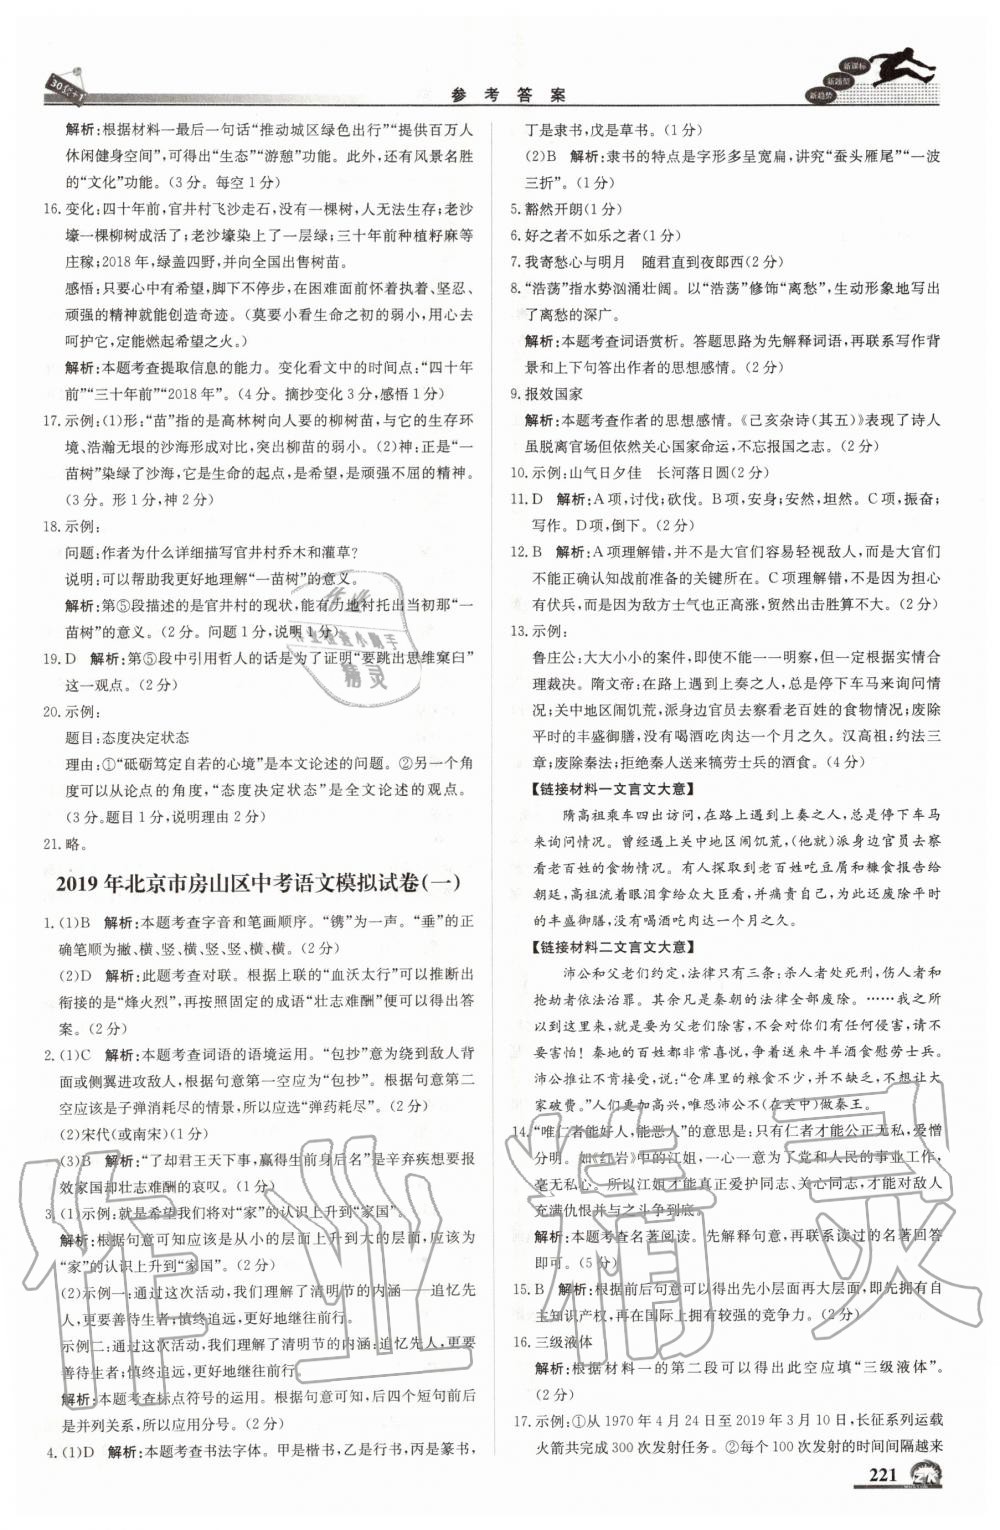 30套+1
参考答案
新课标
新题型
新趋势
解析:根据材料一最后一句话“推动城区绿色出行”“提供百万人
休闲健身空间”,可得出“生态”“游憩”功能。此外,还有风景名胜
的“文化”功能。(3分。每空1分)
16. 变化:四十年前,官井村飞沙走石,没有一棵树,人无法生存;老沙
壕一棵柳树成活了;老沙壕染上了一层绿;三十年前种植籽麻等
庄稼;2018年,绿盖四野,并向全国出售树苗。
感悟:只要心中有希望,脚下不停步,在困难面前怀着执着、坚忍、
顽强的精神就能创造奇迹。(莫要小看生命之初的弱小,用心去
呵护它,定能燃起希望之火。)
解析:本题考查提取信息的能力。变化看文中的时间点:“四十年
前”“三十年前”“2018年”。(4分。摘抄变化3分,感悟1分)
17. 示例:(1)形:“苗”指的是高林树向人要的柳树苗,与它的生存环
境、浩瀚无垠的沙海形成对比,突出柳苗的弱小。(2)神:正是“一
苗树”染绿了沙海,它是生命的起点,是希望,是顽强不屈的精神。
(3分。形1分,神2分)
18. 示例:
问题:作者为什么详细描写官井村乔木和灌草?
说明:可以帮助我更好地理解“一苗树”的意义。
解析:第⑤段描述的是官井村的现状,能有力地衬托出当初那“一
苗树”的意义。(2分。问题1分,说明1分)
19. D 解析:第⑤段中引用哲人的话是为了证明“要跳出思维窠臼”
这一观点。(2分)
20. 示例:
题目:态度决定状态
理由:①“砥砺笃定自若的心境”是本文论述的问题。②另一个角
度可以从论点的角度,“态度决定状态”是全文论述的观点。
(3分。题目1分,说明理由2分)
21. 略。
2019年北京市房山区中考语文模拟试卷(一)
1. (1)B 解析:本题考查字音和笔画顺序。“镌”为一声。“垂”的正
确笔顺为撇、横、竖、横、竖、竖、横、横。(2分)
(2)D 解析:此题考查对联。根据上联的“血沃太行”可以推断出
衔接的是“烽火烈”,再按照固定的成语“壮志难酬”便可以得出答
案。(2分)
2. (1)C 解析:本题考查词语的语境运用。“包抄”意为绕到敌人背
面或侧翼进攻敌人,根据句意第一空应为“包抄”。根据句意第二
空应该是子弹消耗尽的情景,所以应选“弹药耗尽”。(2分)
(2)宋代(或南宋)(1分)
(3)B 解析:“了却君王天下事,赢得生前身后名”是辛弃疾想要报
效家国却壮志难酬的哀叹。(1分)
3. (1)示例:就是希望我们将对“家”的认识上升到“家国”。
解析:根据句意可知应该是从小的层面上升到大的层面,应该为
“家”的认识上升到“家国”。(2分)
(2)示例一:通过这次活动,我们理解了清明节的内涵——追忆先
人,更要善待生者;慎终追远,更好地继往前行。
示例二:通过这次活动,我们理解了清明节的内涵:追忆先人,更要
善待生者;慎终追远,更好地继往前行。
解析:本题考查标点符号的运用。根据句意可知,后四个短句前后
是并列关系,所以应用分号。(2分)
4. (1)D 解析:本题考查书法字体。甲是楷书,乙是行书,丙是篆书,
丁是隶书,戊是草书。(1分)
(2)B 解析:隶书的特点是字形多呈宽扁,讲究“蚕头雁尾”“一波
三折”。(1分)
5. 豁然开朗(1分)
6. 好之者不如乐之者(1分)
7. 我寄愁心与明月 随君直到夜郎西(2分)
8. “浩荡”指水势汹涌壮阔。以“浩荡”修饰“离愁”,生动形象地写出
了离愁的深广。
解析:本题考查词语赏析。答题思路为先解释词语,再联系写作背
景和上下句答出作者的思想感情。(2分)
9. 报效国家
解析:本题考查作者的思想感情。《己亥杂诗(其五)》表现了诗人
虽脱离官场但依然关心国家命运,不忘报国之志。(2分)
10. 示例:山气日夕佳 长河落日圆(2分)
11. D 解析:A项,讨伐;砍伐。B项,安身;安然,坦然。C项,振奋;
写作。D项,倒下。(2分)
12. B 解析:A项理解错,并不是大官们容易轻视敌人,而是大官们
不能正确认知战前准备的关键所在。C项理解错,不是因为担心
有伏兵,而是因为敌方士气也正高涨,贸然出击胜算不大。(2分)
13. 示例:
鲁庄公:大大小小的案件,即使不能一一明察,但一定根据实情合
理裁决。隋文帝:在路上遇到上奏之人,总是停下车马来询问情
况;关中地区闹饥荒,派身边官员去察看老百姓的食物情况;废除
平时的丰盛御膳,没有喝酒吃肉几乎一年之久。汉高祖:约法三
章;废除秦法;拒绝秦人送来犒劳士兵的酒食。(4分)
【链接材料一文言文大意】
隋高祖乘车四出访问,在路上遇到上奏之人,总是停下车马
来询问情况。曾经遇上关中地区闹饥荒,(他就)派身边官员去察
看老百姓的食物。有人探取到老百姓吃的豆屑和糠食报告给皇
上,高祖流着眼泪拿给大臣们看,并为此还废除平时
的丰盛御膳,没有喝酒吃肉几乎一年之久。
【链接材料二文言文大意】
沛公和父老们约定,法律只有三条:杀人者处死刑,伤人者和
抢劫者依法治罪。其余凡是秦朝的法律全部废除。……我之所
以到这里来,就是要为父老们除害,不会对你们有任何侵害,请不
要害怕!秦地的百姓都非常喜悦,争着送来牛羊酒食慰劳士兵。
沛公推让不肯接受,说:“仓库里的粮食不少,并不缺乏,不想让大
家破费。”人们更加高兴,唯恐沛公不(在关中)做秦王。
14. “唯仁者能好人,能恶人”的意思是:只有仁者才能公正无私,爱憎
分明。如《红岩》中的江姐,一心一意为了党和人民的事业工作,
毫无私心。所以江姐才能真正爱护同志、关心同志,才能对敌人
充满仇恨并与之斗争到底。
解析:本题考查名著阅读。先解释句意,再联系读过的名著回答
即可。(5分)
15. B 解析:根据前后句意可以得出先小层面再大层面,即先拥有自
主知识产权,再在国际上拥有较强的竞争力。(2分)
16. 三级液体
解析:根据材料一的第二段可以得出此空应填“三级液体”。
(2分)
17. 示例:①从1970年4月24日至2019年3月10日,长征系列运载
火箭共完成300次发射任务。②每个100次发射的时间间隔越来
221
作业精灵